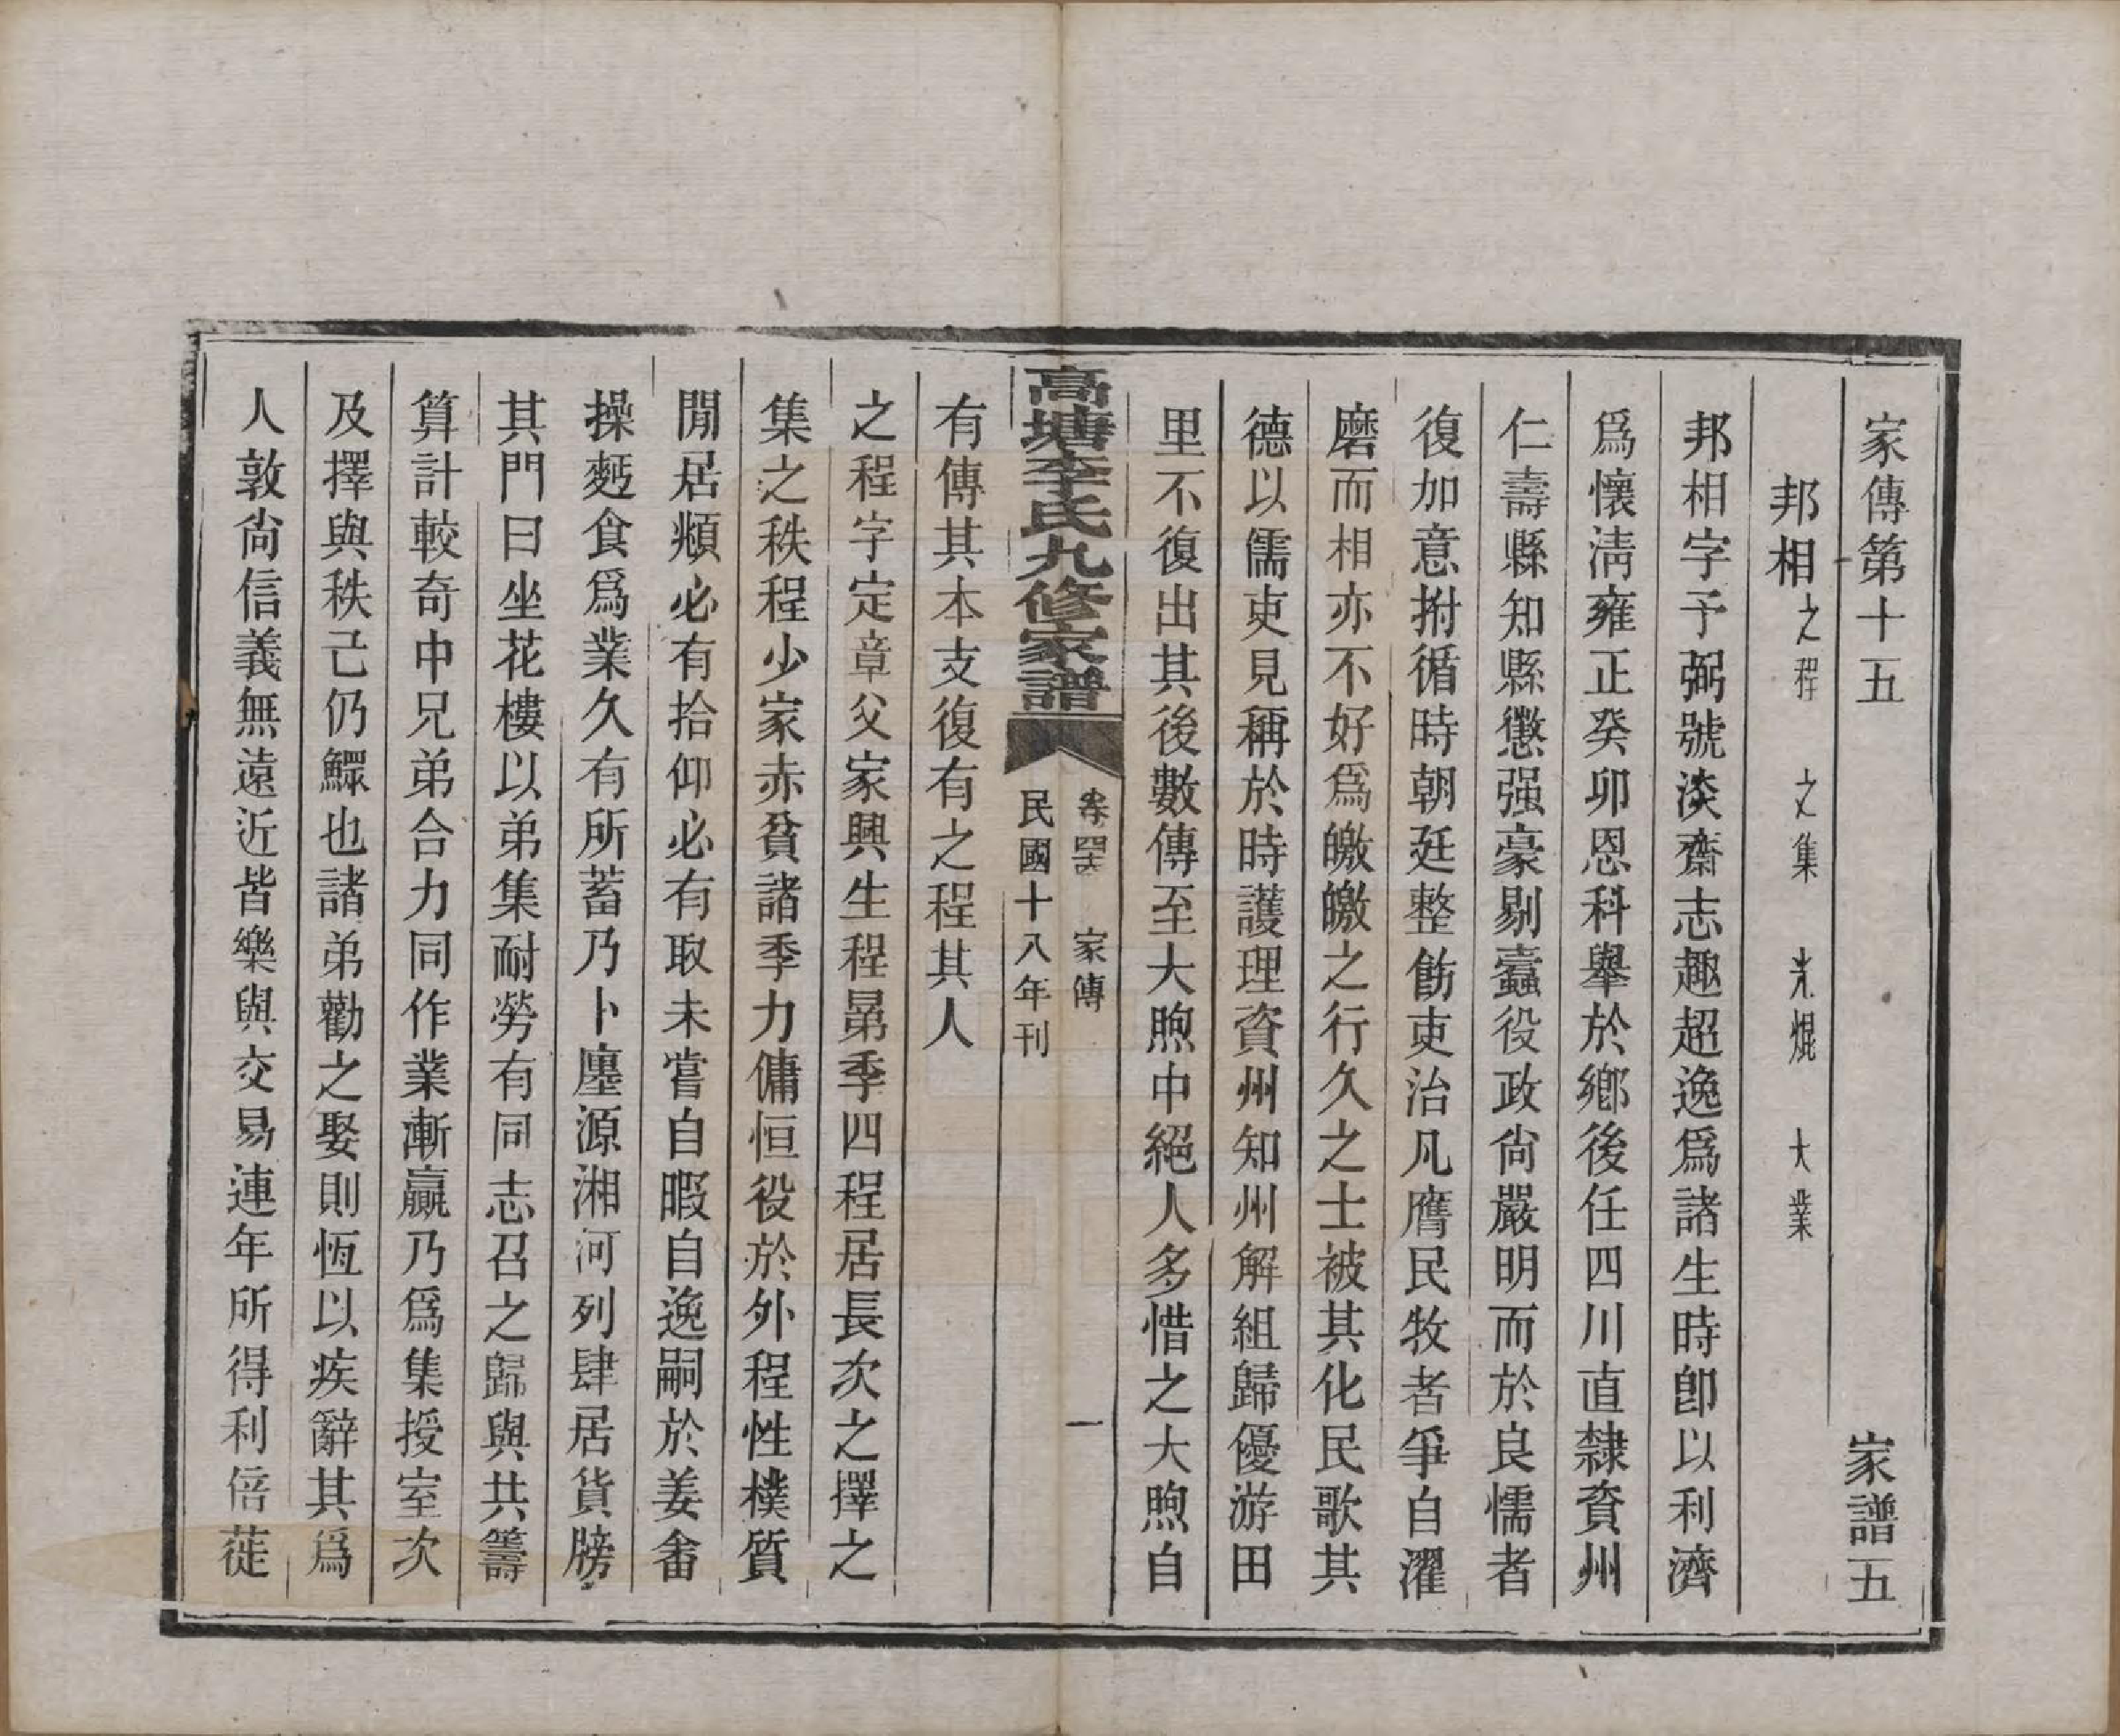 家傳第十五　家譜五
邦相 之程 之集 光焜 大業
邦相字予弼號淡齋志趣超逸爲諸生時卽以利濟
爲懷淸雍正癸卯恩科舉於鄕後任四川直隸資州
仁壽縣知縣懲强豪剔蠹役政尙嚴明而於良懦者
復加意拊循時朝廷整飭吏治凡膺民牧者爭自濯
磨而相亦不好爲皦皦之行久之士被其化民歌其
德以儒吏見稱於時護理資州知州解組歸優游田
里不復出其後數傳至大煦中絕人多惜之大煦自
高塘李氏九修家譜 卷四 家傳 一
民國十八年刊
有傳其本支復有之程其人
之程字定章父家興生程晜季四程居長次之擇之
集之秩程少家赤貧諸季力傭恒役於外程性樸質
閒居頫必有拾仰必有取未嘗自暇自逸嗣於姜畬
操麫食爲業久有所蓄乃卜廛源湘河列肆居貨牓
其門曰坐花樓以弟集耐勞有同志召之歸與共籌
算計較奇中兄弟合力同作業漸贏乃爲集授室次
及擇與秩己仍鰥也諸弟勸之娶則恆以疾辭其爲
人敦尙信義無遠近皆樂與交易連年所得利倍蓰